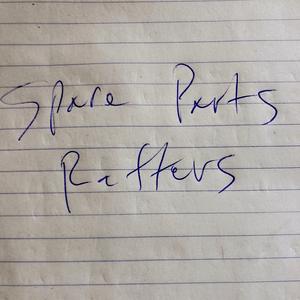 Spare Parts
Rafters